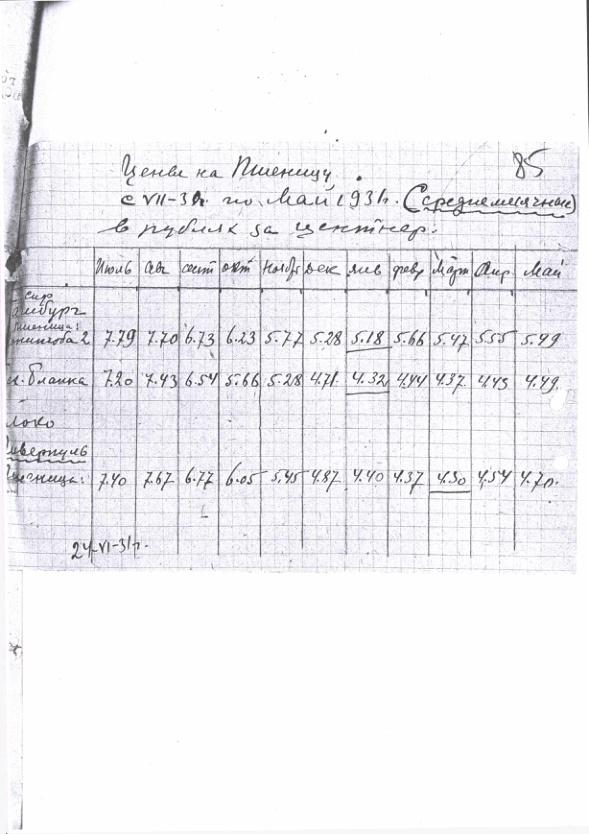 85
Цены на Пшеницу
с VII-30г. по Май 1931г. (Среднемесячные)
в рублях за центнер.
Июль Авг сент окт Ноябр Дек янв февр Март Апр Май
сиф
амбург
Пшеница:
нитоба 2 7.79 7.70 6.73 6.23 5.77 5.28 5.18 5.66 5.47 555 5.49
бланка 7.20 7.43 6.54 5.66 5.28 4.71. 4.32 4.44 4.37. 4.43 4.49.
локо
иверпуль
шеница: 7.40 7.67 6.77 6.05 5.45 4.87 4.40 4.37 4.30 4.54 4.70.
24-VI-31г.